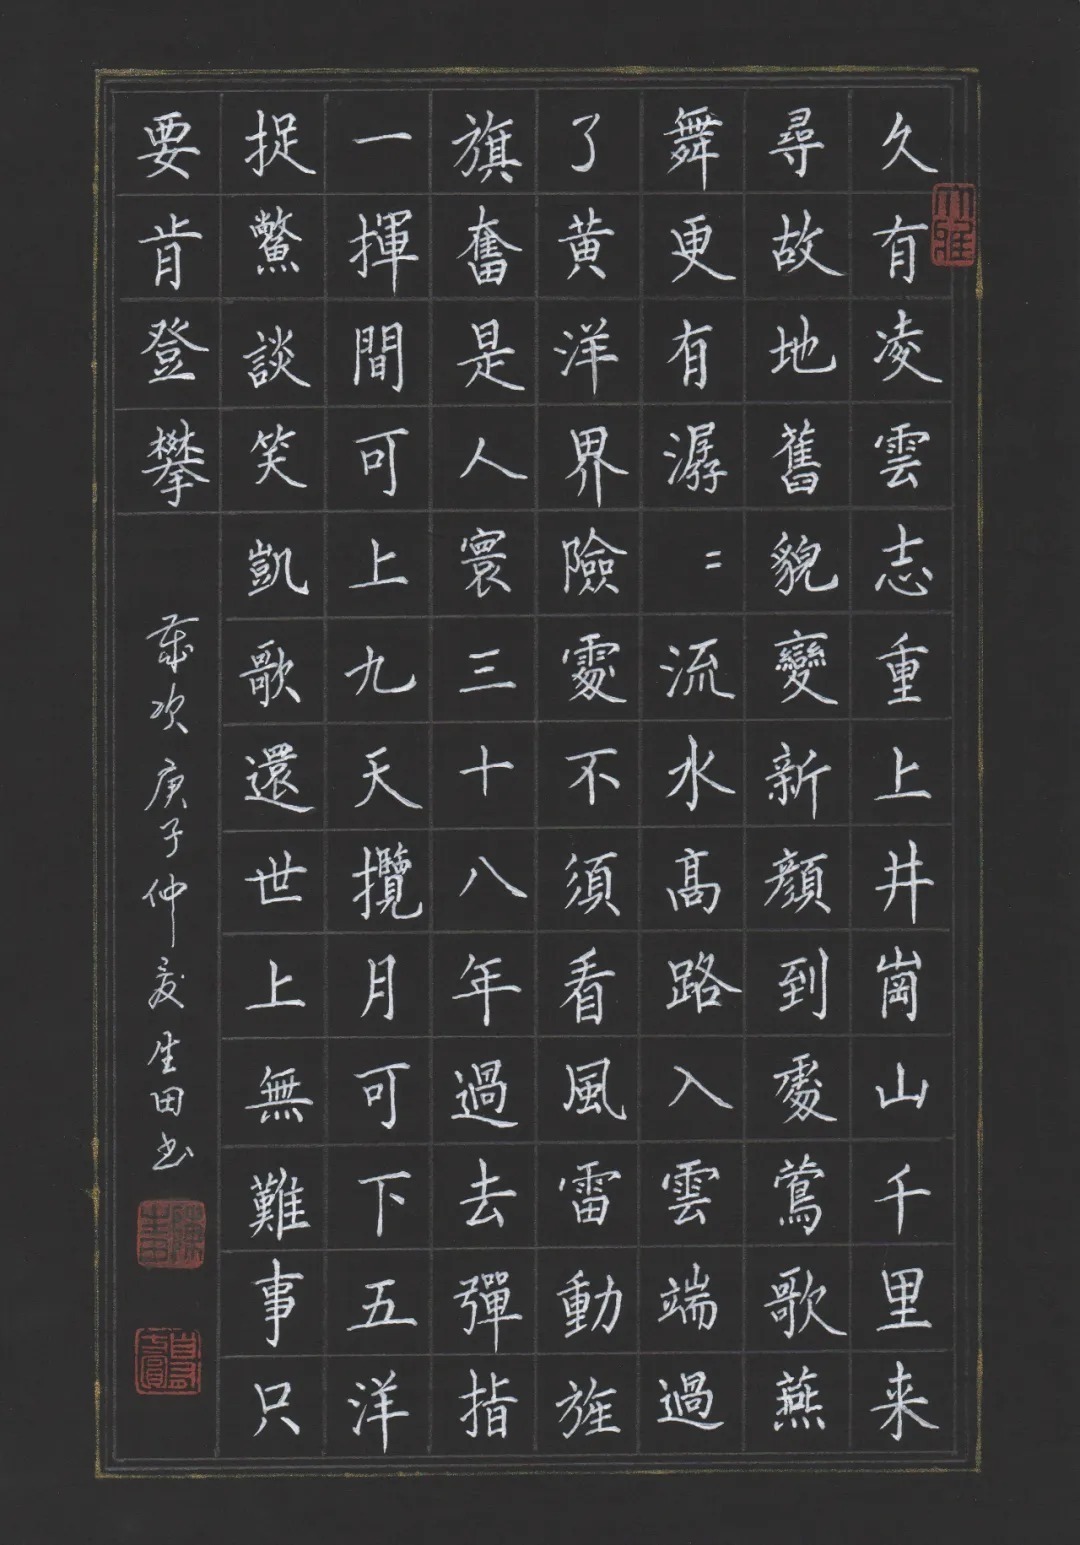 久有凌雲志重上井崗山千里来
尋故地舊貌變新顔到處鶯歌燕
舞更有潺〻流水高路入雲端過
了黄洋界險處不須看風雷動旌
旗奮是人寰三十八年過去彈指
一揮間可上九天攬月可下五洋
捉鱉談笑凱歌還世上無難事只
要肯登攀
歲次庚子仲夏生田书